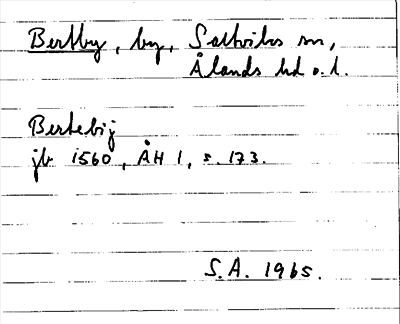 Bertby, by, Saltviks sn,
Ålands hd o. l.
Bertebij
jb 1560, ÅH 1, s. 173.
S.A. 1965.